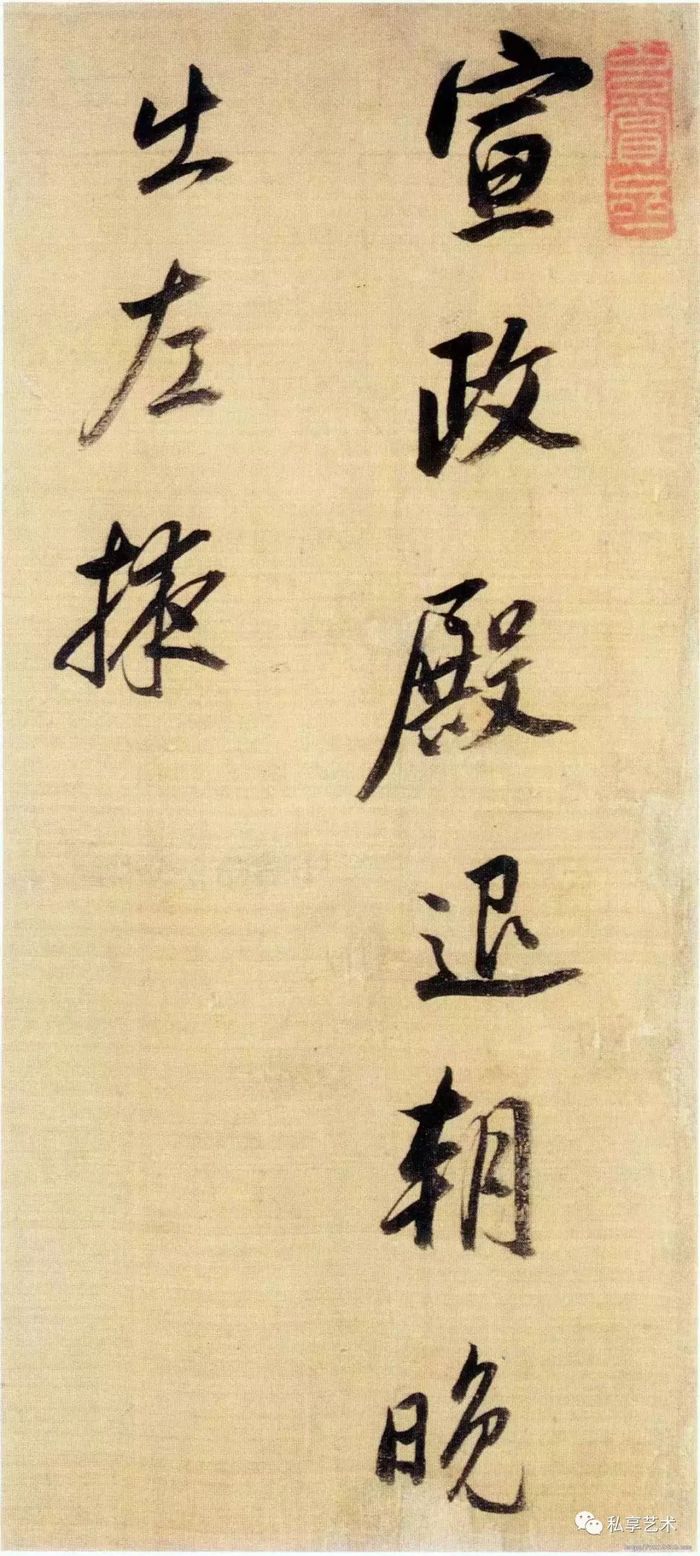 宣政殿退朝晚
出左掖
私享艺术